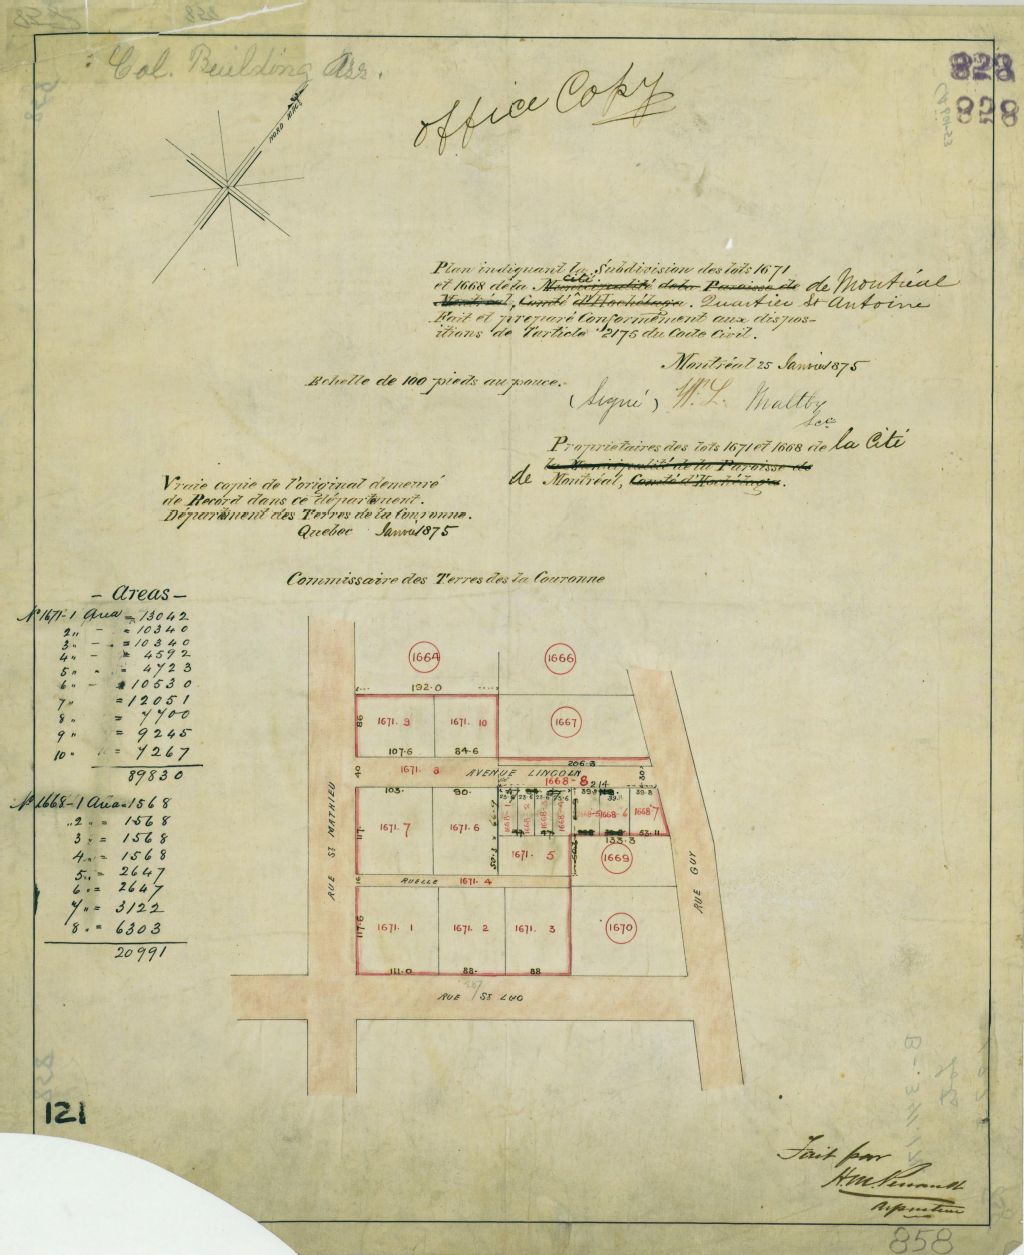 Col. Building Ass.
Office Copy
858
858
NORD MAG.
Plan indiquant la Subdivision des lots 1671
et 1668 de la Cité Municipalité de la Paroisse de de Montréal
Montréal, Comté d'Hochélaga. Quartier St Antoine
Fait et préparé Conformément aux dispos-
itions de l'article 2175 du Code Civil.
Montréal 25 Janvier 1875
Echelle de 100 pieds au pouce.
(Signé) Wm L. Maltby
Sec
Propriétaires des lots 1671 et 1668 de la Cité
la Municipalité de la Paroisse de
de Montréal, Comté d'Hochélaga.
Vraie copie de l'original demeuré
de Record dans ce département.
Département des Terres de la Couronne.
Quebec Janvier 1875
Commissaire des Terres des la Couronne
- Areas -
No 1671-1 Area = 13042
2 " - = 10340
3 " - = 10340
4 " - = 4592
5 " " = 4723
6 " - = 10530
7 " = 12051
8 " = 7700
9 " = 9245
10 " = 7267
89830
No 1668-1 Area = 1568
" 2 " = 1568
3 " = 1568
4 " = 1568
5 " = 2647
6 " = 2647
7 " = 3122
8 " = 6303
20991
1664
1666
192.0
86
1671. 9
1671. 10
1667
107.6
84.6
206.3
40
1671. 8
AVENUE LINCOLN
30
1668-8
214
103.
90.
39.8
117.
1671. 7
1671. 6
1668-1
1668-2
1668-5
1668-6
1668-7
53.11
133.3
50.3
1671. 5
1669
16
RUELLE 1671. 4
117.6
1671. 1
1671. 2
1671. 3
1670
111.0
88.
88
267
RUE ST LUC
RUE ST MATHIEU
RUE GUY
121
Fait par
Arpenteur
858